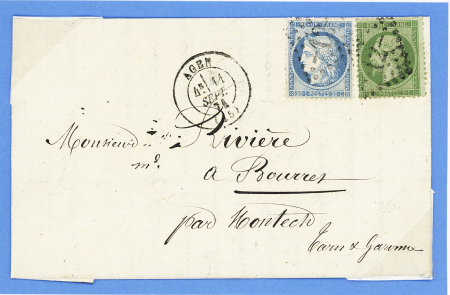 AGEN
SEPT.
Monsieur Rivière
md.
a Bourret
par Montech
Tarn & Garonne